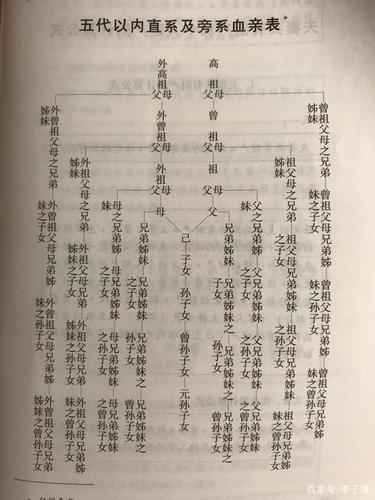 五代以内直系及旁系血亲表*
高祖父母
外高祖父母
曾祖父母
外曾祖父母
祖父母
外祖父母
父
母
己
子女
孙子女
曾孙子女
元孙子女
曾祖父母之兄弟
姊妹
曾祖父母兄弟姊
妹之子女
曾祖父母兄弟姊
妹之孙子女
祖父母之兄弟
姊妹
祖父母兄弟姊
妹之子女
祖父母兄弟姊
妹之孙子女
祖父母兄弟姊
妹之曾孙子女
父之兄弟姊
妹
父兄弟姊妹
之子女
父兄弟姊妹
之孙子女
父兄弟姊妹
之曾孙子女
兄弟姊妹
兄弟姊妹之
子女
兄弟姊妹之
孙子女
兄弟姊妹之
曾孙子女
母之兄弟姊
妹
母兄弟姊妹
之子女
母兄弟姊妹
之孙子女
母兄弟姊妹
之曾孙子女
外祖父母之兄弟
姊妹
外祖父母兄弟姊
妹之子女
外祖父母兄弟
姊妹之孙子女
外祖父母兄弟
姊妹之曾孙子女
外曾祖父母之兄弟
姊妹
外曾祖父母兄弟姊
妹之子女
外曾祖父母兄弟姊
妹之孙子女
百家号/李子